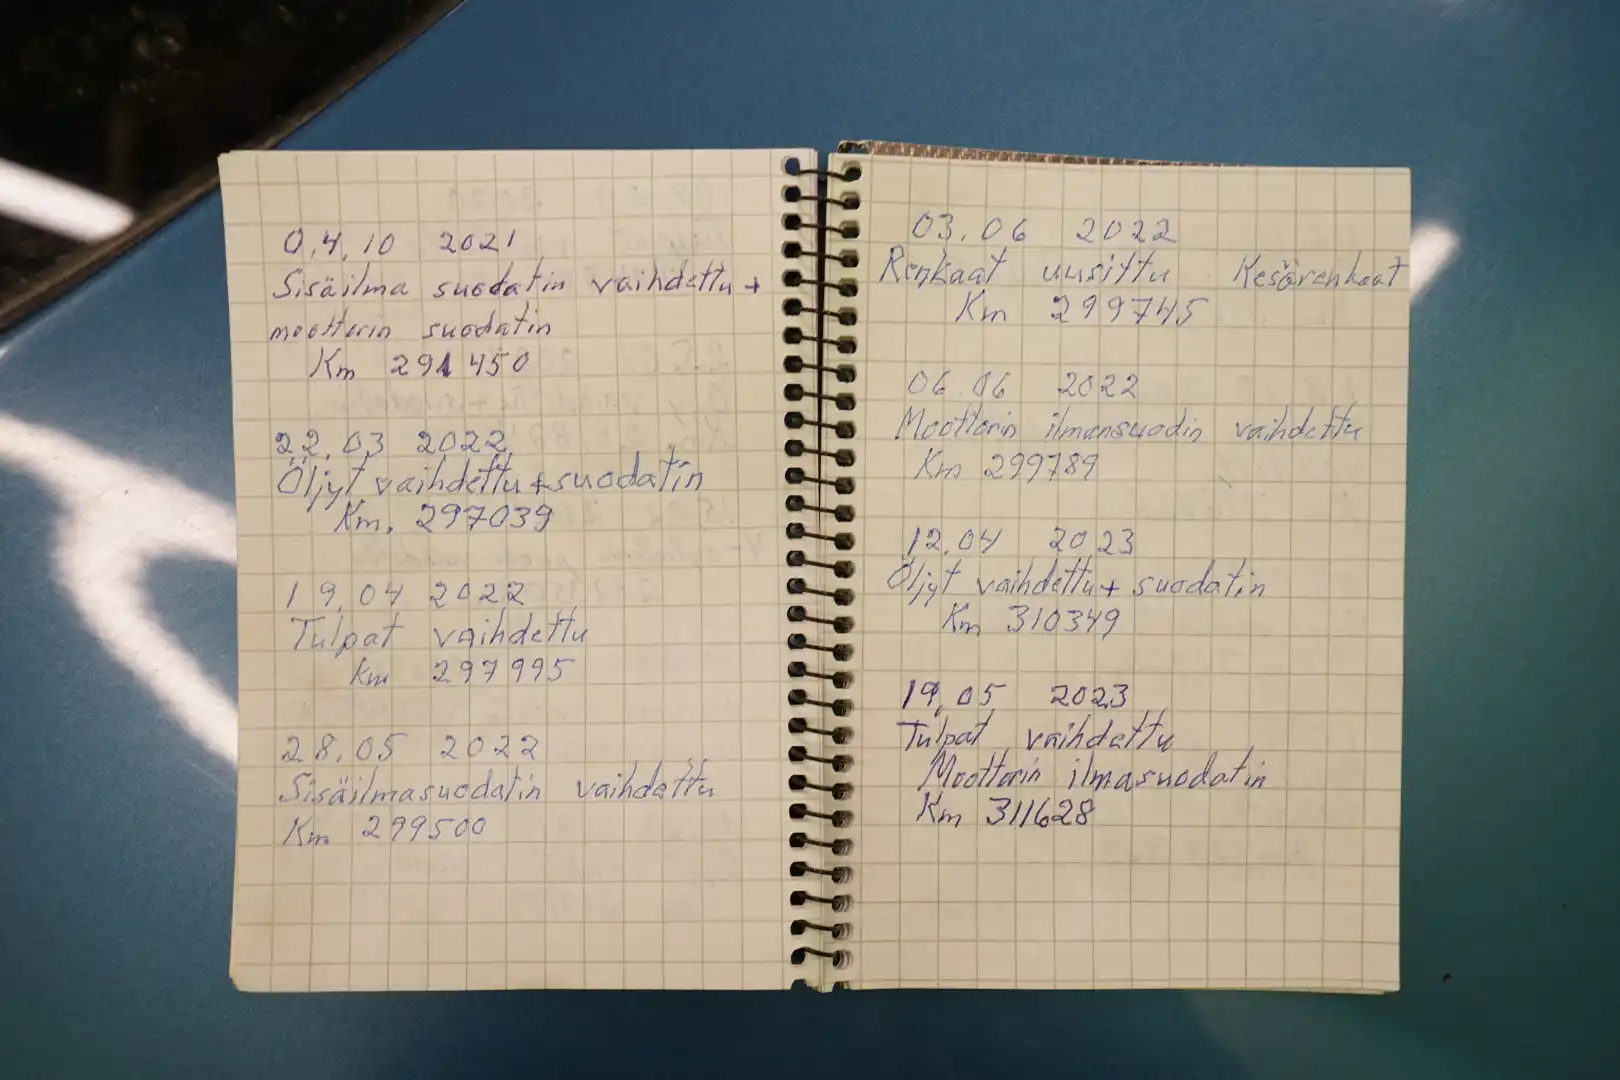 04.10 2021
Sisäilma suodatin vaihdettu +
moottorin suodatin
Km 291 450
22.03 2022
Öljyt vaihdettu + suodatin
Km. 297039
19.04 2022
Tulpat vaihdettu
Km 297995
28.05 2022
Sisäilmasuodatin vaihdettu
Km 299500
03.06 2022
Renkaat uusittu Kesärenkaat
Km 299745
06.06 2022
Moottorin ilmansuodin vaihdettu
Km 299789
12.04 2023
Öljyt vaihdettu + suodatin
Km 310349
19.05 2023
Tulpat vaihdettu
Moottorin ilmasuodatin
Km 311628